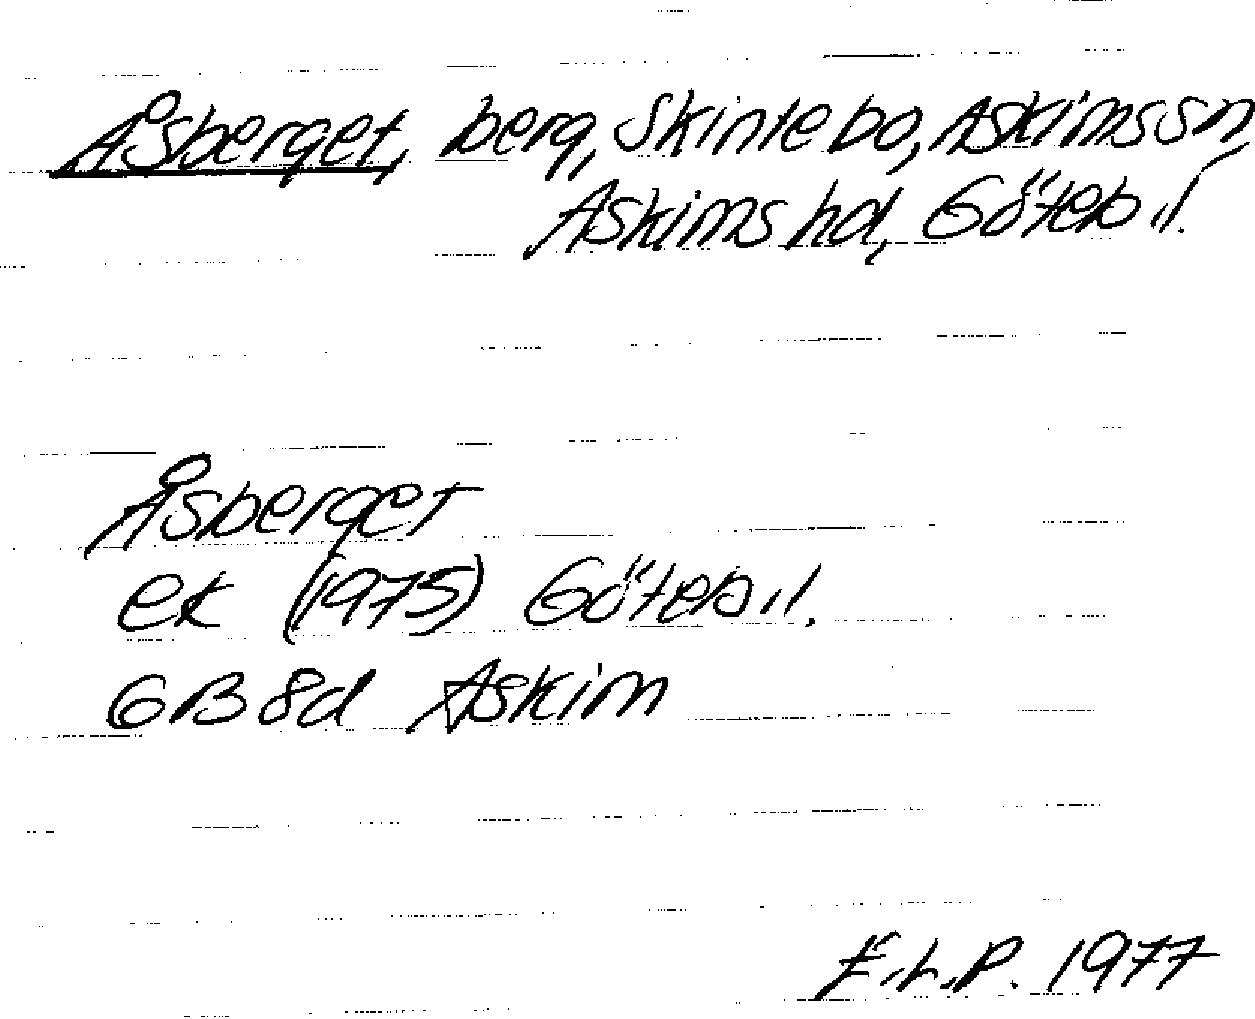 Åsberget, berg, Skintebo, Askims sn,
Askims hd, Göteb. l.
Åsberget
ek (1975) Göteb. l.
6B 8d Askim
E.L.P. 1977